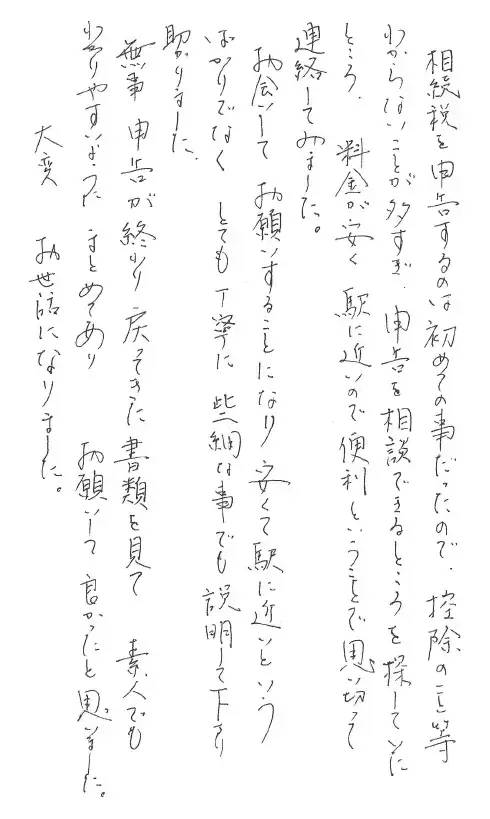 相続税を申告するのは初めての事だったので、控除のこと等
わからないことが多すぎ、申告を相談できるところを探していた
ところ、料金が安く駅に近いので便利ということで思い切って
連絡してみました。
お会いして お願いすることになり 安くて駅に近いという
ばかりでなく とても丁寧に 些細な事でも 説明して下さり
助かりました。
無事 申告が終わり 戻ってきた書類を見て 素人でも
わかりやすいように まとめてあり お願いして 良かったと思いました。
大変 お世話になりました。